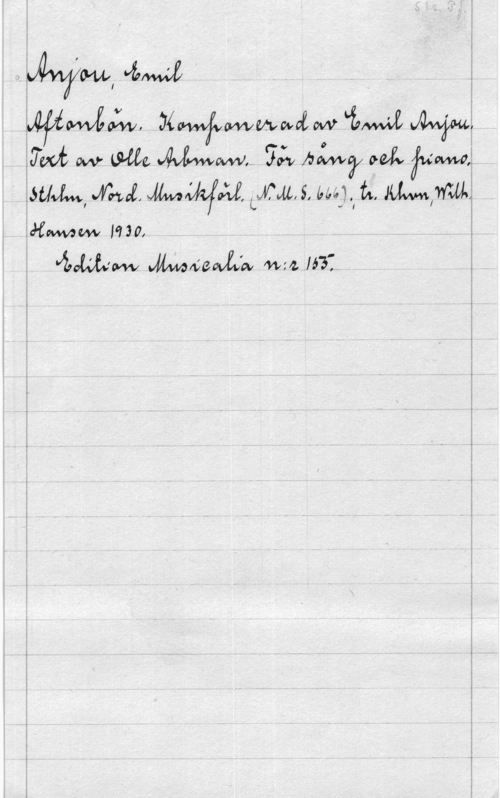 Anjou, Emil
Aftonbön. Komponerad av Emil Anjou.
Text av Olle Arbman. För sång och piano.
Sthlm, Nord. Musikförl. (N.M.S. 666), tr. Khvn, Wilh.
Hansen 1930.
Edition Musicalia n:r 155.